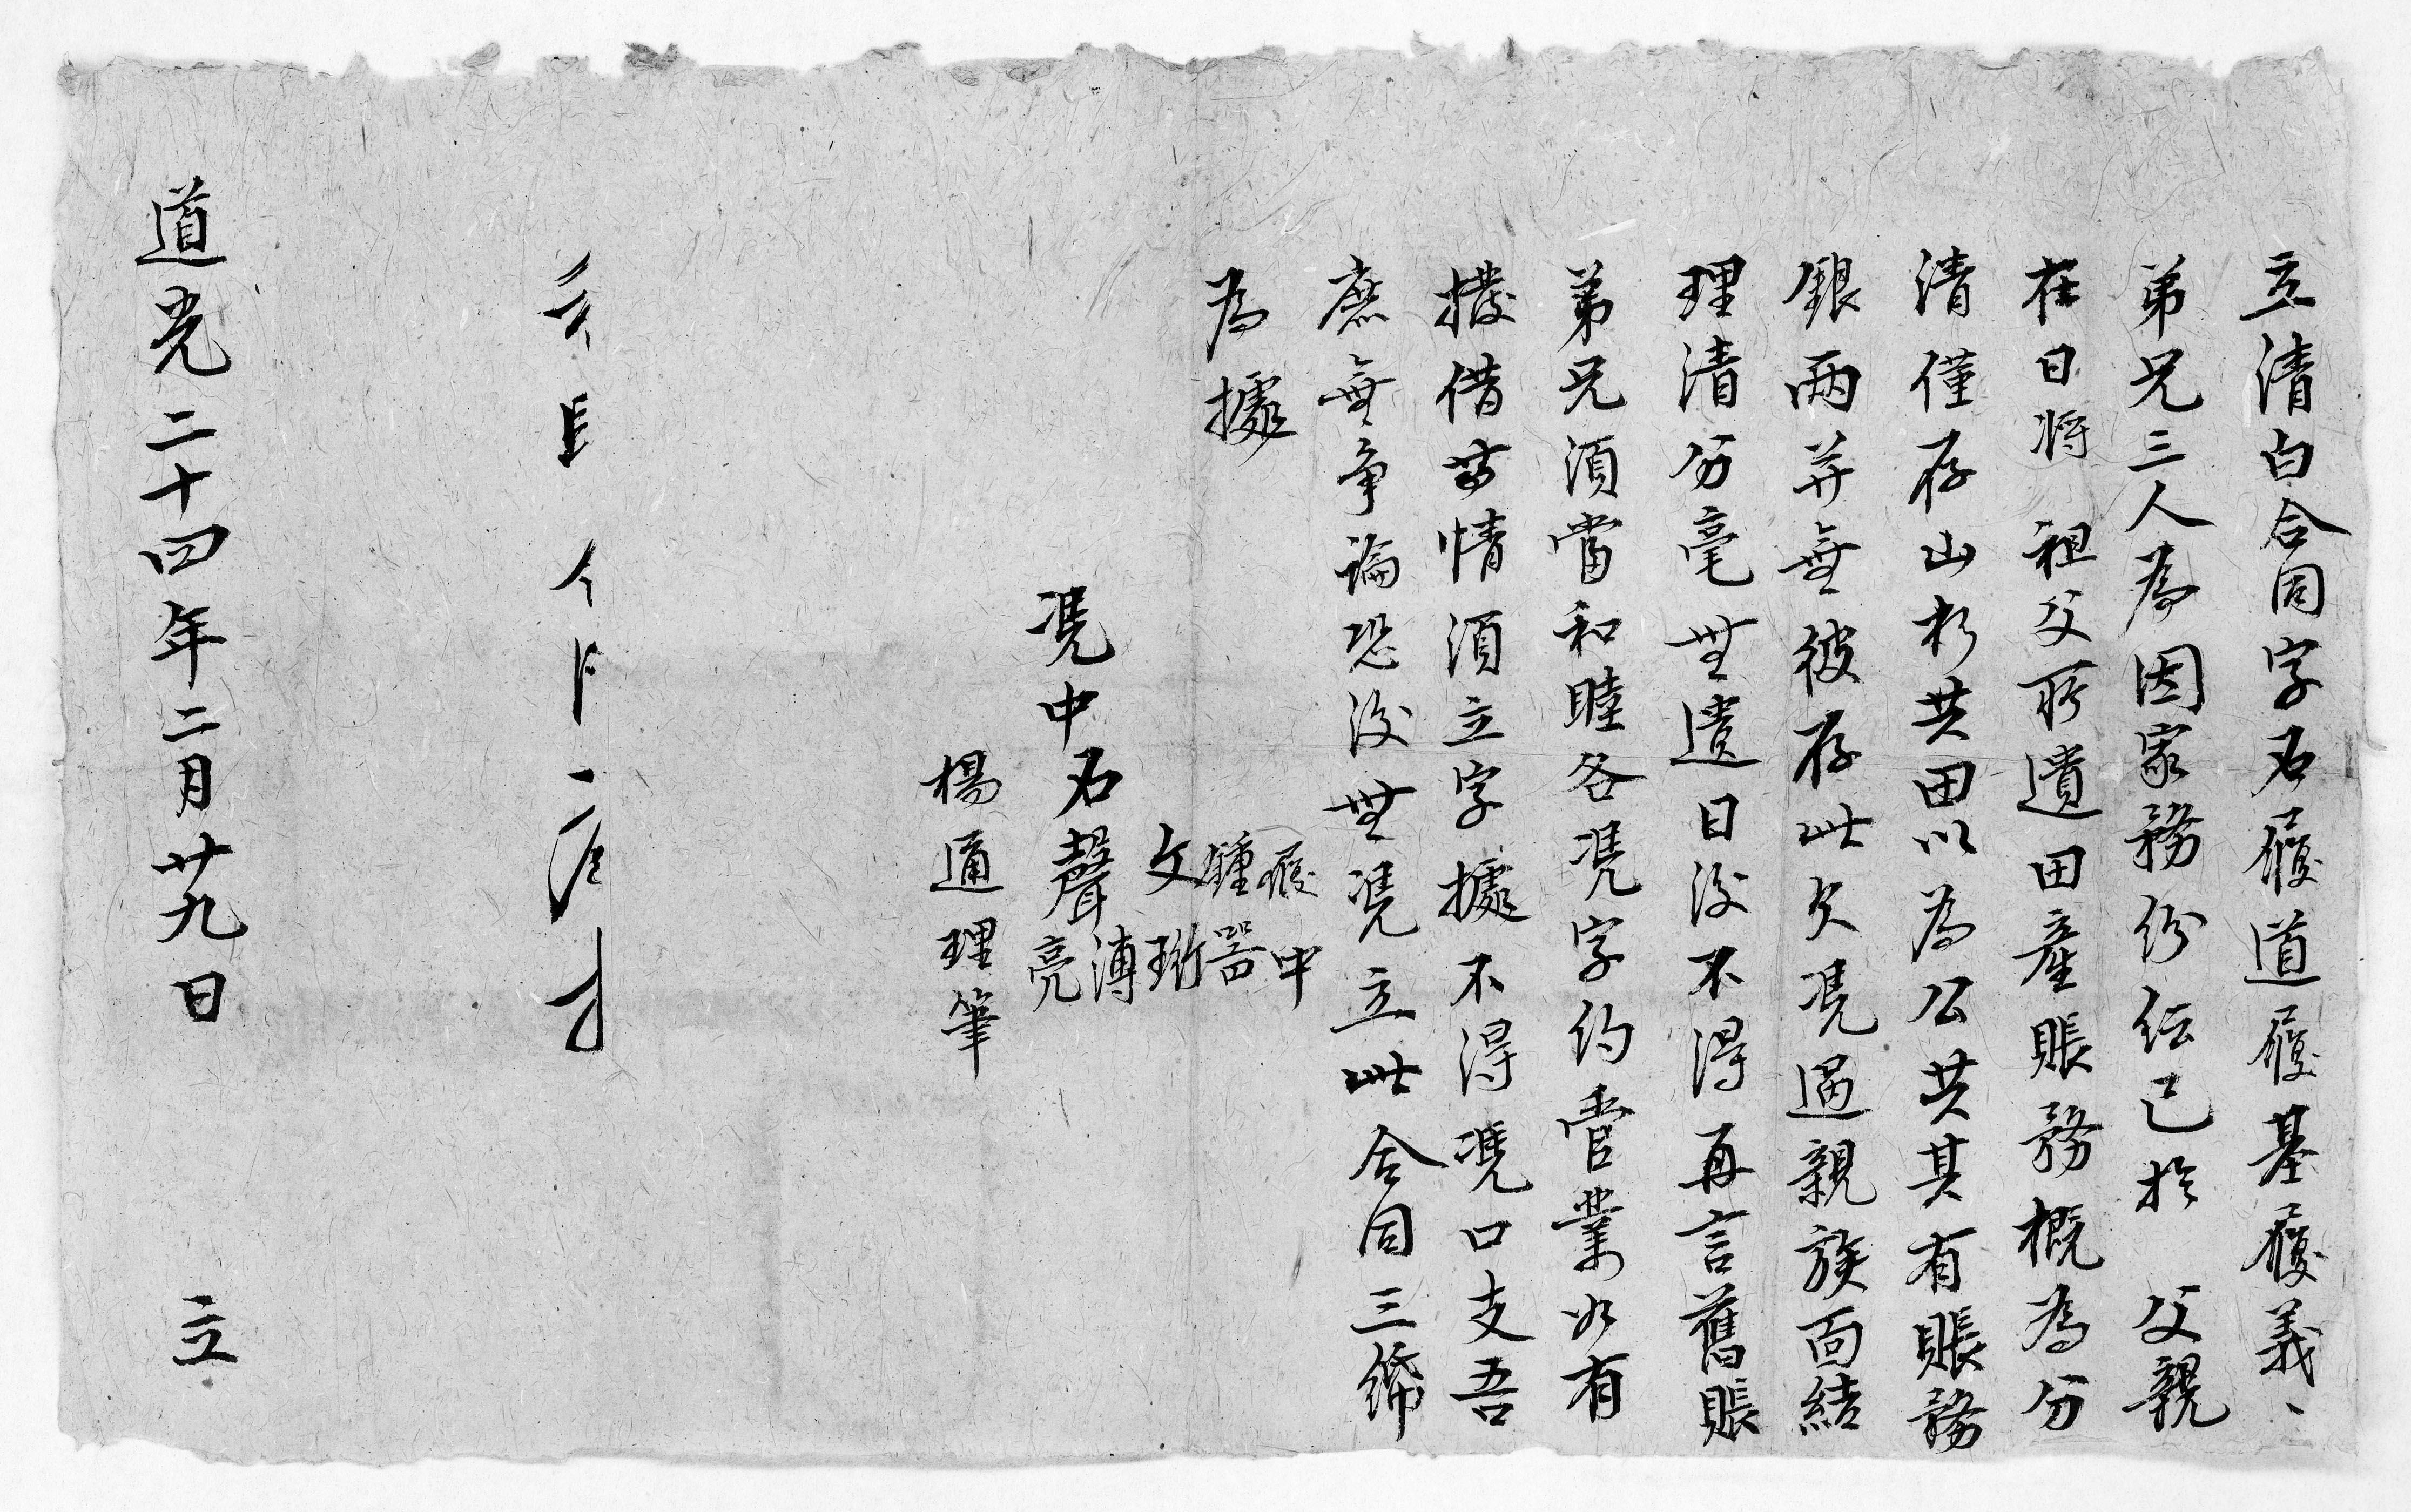 立清白合同字石履道履基履義、
弟兄三人為因家務份經已於 父親
在日將 祖父所遺田產賬務概為分
清僅存山杉共田以為公共其有賬務
銀兩并無彼存此欠憑過親族面結
理清分毫無遺日後不得再言舊賬
弟兄須當和睦各憑字約管業如有
撥借苦情須立字據不得憑口支吾
庶無爭論恐後無憑立此合同三紙
為據
憑中石聲亮溥
文珩
鍾器
履中
楊通理筆
道光二十四年二月廿九日 立